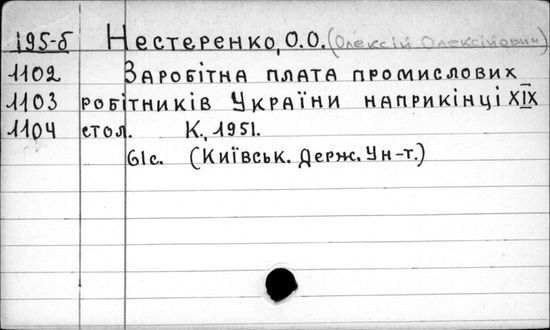 195-б Нестеренко, О.О. (Олексій Олексійович)
1102 Заробітна плата промислових
1103 робітників України наприкінці XIX
1104 стол. К., 1951.
61с. (Київськ. Держ. Ун-т.)